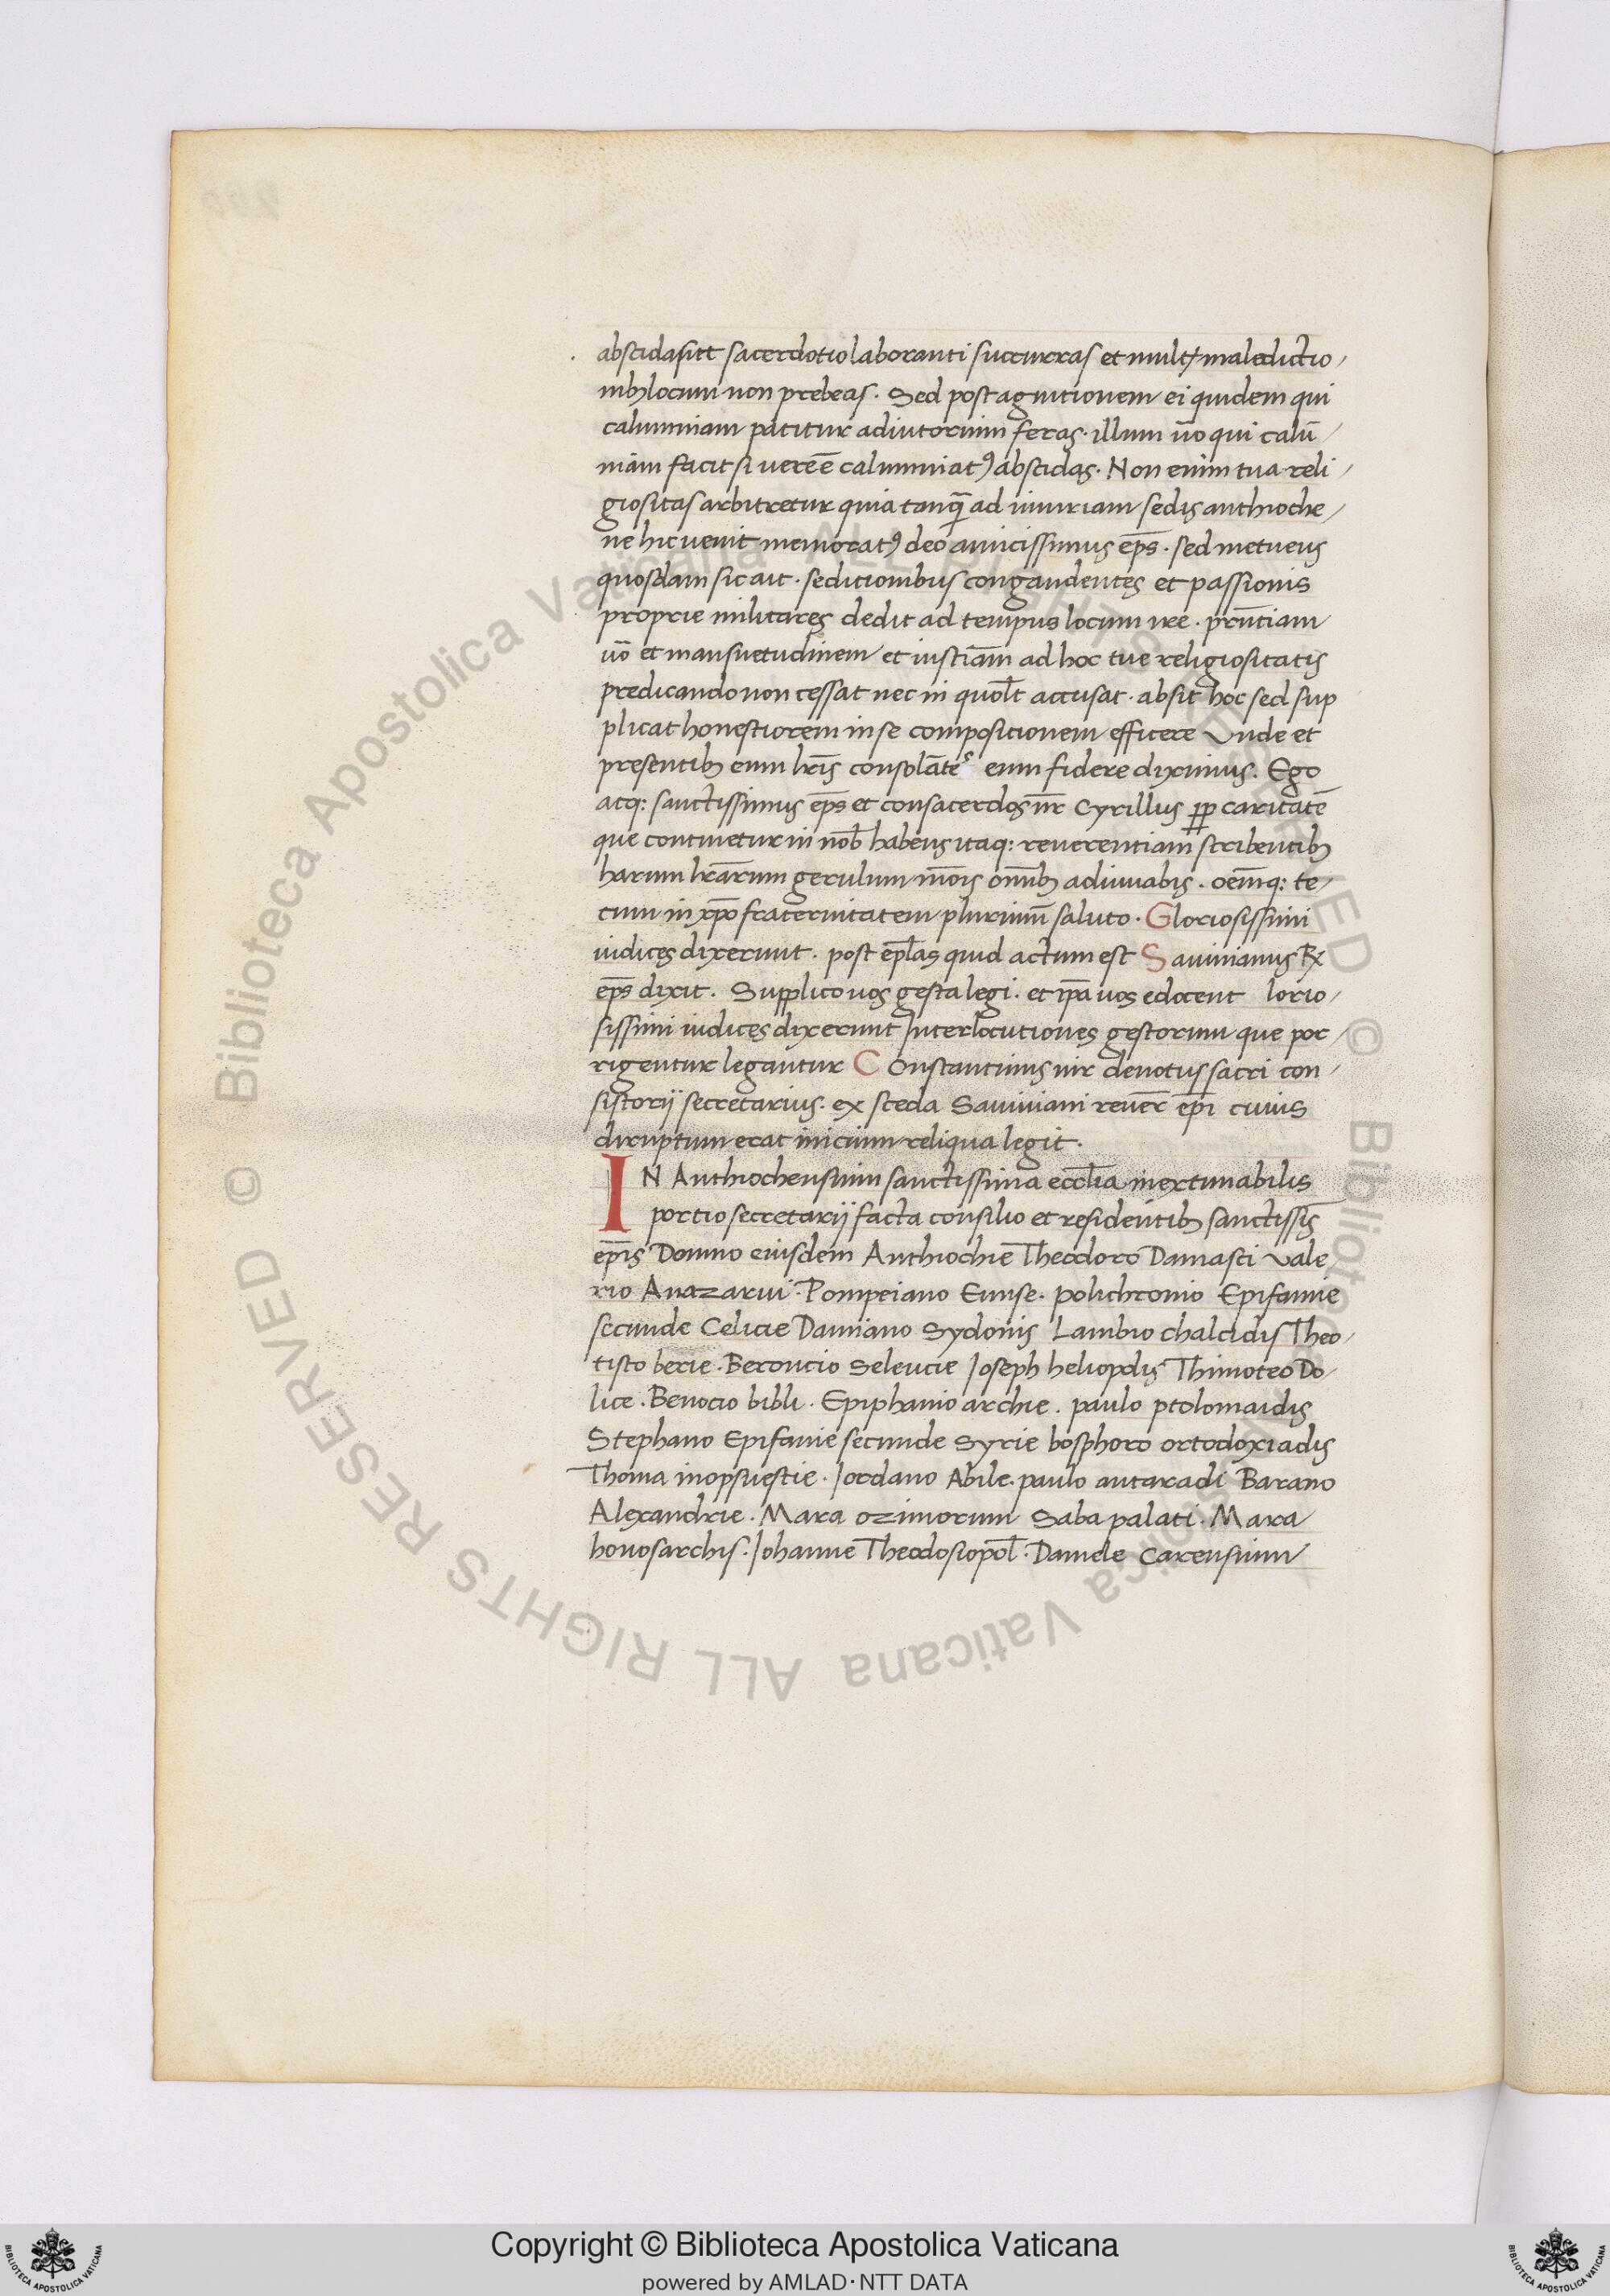 abscidas ut sacerdotio laboranti succurras et multꝭ maledictio
nibꝫ locum non prebeas. Sed post agnitionem ei quidem qui
calumniam patitur adiutorium feras. illum ūo qui calū
niam facit si vere ē calumniatꝰ abscidas. Non enim tua reli
giositas arbitretur quia tanq̄ ad iniuriam sedis anthioche
ne hic venit memoratꝰ deo amicissimus ep̄s. sed metuens
quosdam sic ait. seditionibus congaudentes et passionis
proprie militares dedit ad tempus locum nee. prn̄tiam
ūo et mansuetudinem et iusticiā ad hoc tue religiositatis
predicando non cessat nec in quol̄t accusat. absit hoc sed sup
plicat honestiorem in se compositionem efficere Unde et
presentibꝫ eum lr̄is consolāteˢ eum fidere diximus. Ego
atq: sanctissimus ep̄s et consacerdos nr̄ Cyrillus ꝓp caritatē
que continetur in nob̄ habens itaq: reverentiam scribentibꝫ
harum lr̄arum gerulum m̄ois om̄ibꝫ adiuvabis. oēmq: te
cum in xp̄o fraternitatem plurimū saluto. Gloriosissimi
iudices dixerunt. post ep̄las quid actum est Savinianus R
ep̄s dixit. Supplico vos gesta legi. et ip̄a vos edocent lorio
sissimi iudices dixerunt Interlocutiones gestorum que por
rigentur legantur C Onstantinus vir devotus sacri con
sistorij secretarius. ex sceda Saviniani rever̄ ep̄i cuius
diruptum erat inicium reliqua legit.
IN Anthiochensium sanctissima eccl̄ia inextimabilis
portio secretarij facta consilio et residentibꝫ sanctissīs
ep̄is Domno eiusdem Anthiochie Theodoro Damasci Vale
rio Anazarvi. Pompeiano Emise. Polichronio Epifanie
secunde Celicie Damiano Sydonis Lambio chalcidis Theo
tisto berie. Beroncio Seleucie Joseph heliopolis Thimoteo Do
lice. Benocio bibli. Epiphanio archie. paulo ptolomaidis
Stephano Epifanie secunde Syrie bosphoro ortodoxiadis
Thoma inopsuestie. Jordano Abile. paulo antaradi Barano
Alexandrie. Mara ozimorum Saba palati. Mara
honosarchis. Johanne Theodosiopol̄. Daniele Carensium
Copyright © Biblioteca Apostolica Vaticana
powered by AMLAD·NTT DATA